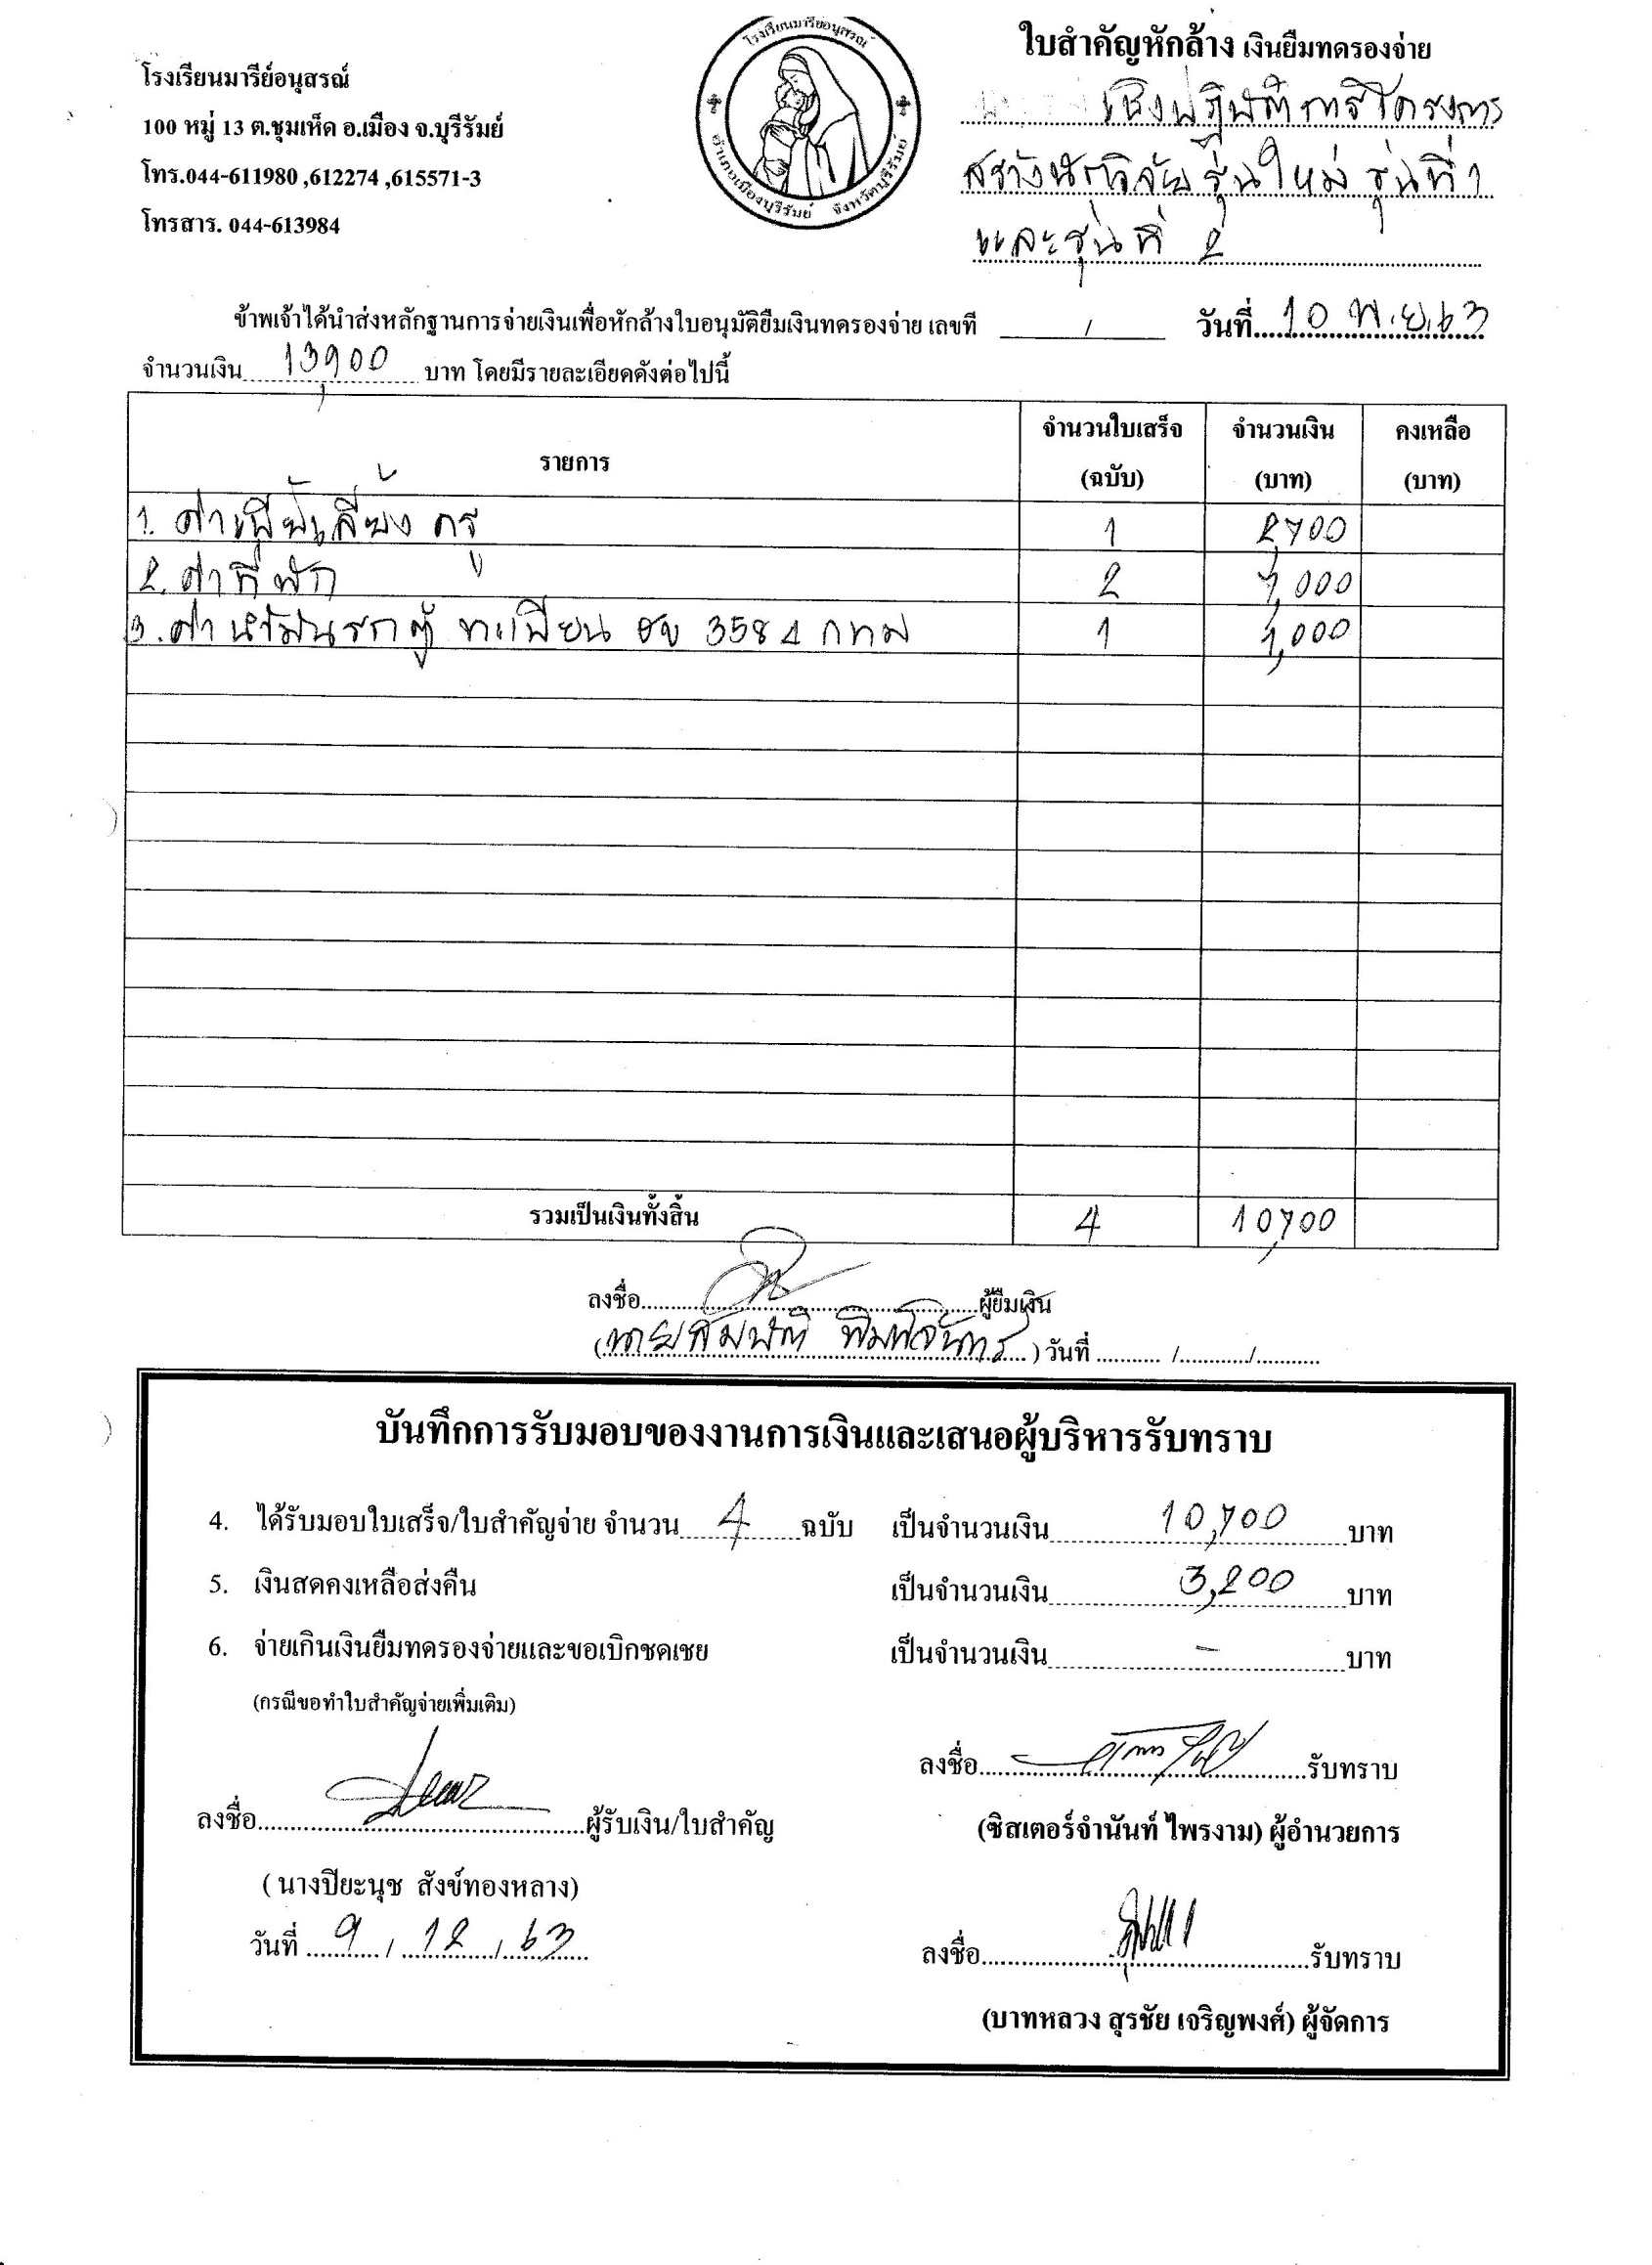 โรงเรียนมารีย์อนุสรณ์
100 หมู่ 13 ต.ชุมเห็ด อ.เมือง จ.บุรีรัมย์
โทร.044-611980 ,612274 ,615571-3
โทรสาร. 044-613984
โรงเรียนมารีย์อนุสรณ์
อำเภอเมืองบุรีรัมย์ จังหวัดบุรีรัมย์
ใบสำคัญหักล้าง เงินยืมทดรองจ่าย
เชิงปฏิบัติการโครงการ
สร้างนักวิจัยรุ่นใหม่ รุ่นที่ 1
และรุ่นที่ 2
ข้าพเจ้าได้นำส่งหลักฐานการจ่ายเงินเพื่อหักล้างใบอนุมัติยืมเงินทดรองจ่าย เลขที่ / วันที่ 10 พ.ย. 63
จำนวนเงิน 13,900 บาท โดยมีรายละเอียดดังต่อไปนี้
รายการ จำนวนใบเสร็จ (ฉบับ) จำนวนเงิน (บาท) คงเหลือ (บาท)
1. ค่าเบี้ยเลี้ยง ครู 1 2,700
2. ค่าที่พัก 2 7,000
3. ค่าน้ำมันรถตู้ ทะเบียน ฮง 3584 กทม 1 1,000
รวมเป็นเงินทั้งสิ้น 4 10,700
ลงชื่อ ผู้ยืมเงิน
(นายสัมพันธ์ พิมพ์จันทร์) วันที่ / /
บันทึกการรับมอบของงานการเงินและเสนอผู้บริหารรับทราบ
4. ได้รับมอบใบเสร็จ/ใบสำคัญจ่าย จำนวน 4 ฉบับ เป็นจำนวนเงิน 10,700 บาท
5. เงินสดคงเหลือส่งคืน เป็นจำนวนเงิน 3,200 บาท
6. จ่ายเกินเงินยืมทดรองจ่ายและขอเบิกชดเชย เป็นจำนวนเงิน - บาท
(กรณีขอทำใบสำคัญจ่ายเพิ่มเติม)
ลงชื่อ รับทราบ
ลงชื่อ ผู้รับเงิน/ใบสำคัญ
(ซิสเตอร์จำนันท์ ไพรงาม) ผู้อำนวยการ
( นางปิยะนุช สังข์ทองหลาง)
วันที่ 9 / 12 / 63
ลงชื่อ รับทราบ
(บาทหลวง สุรชัย เจริญพงศ์) ผู้จัดการ